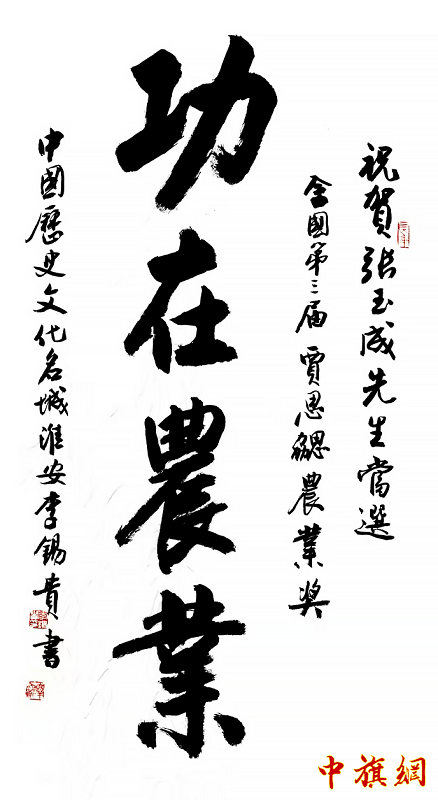 祝賀張玉成先生當選
全國第三届賈思勰農業奖
功在農業
中國歷史文化名城淮安李錫貴書
中旗網